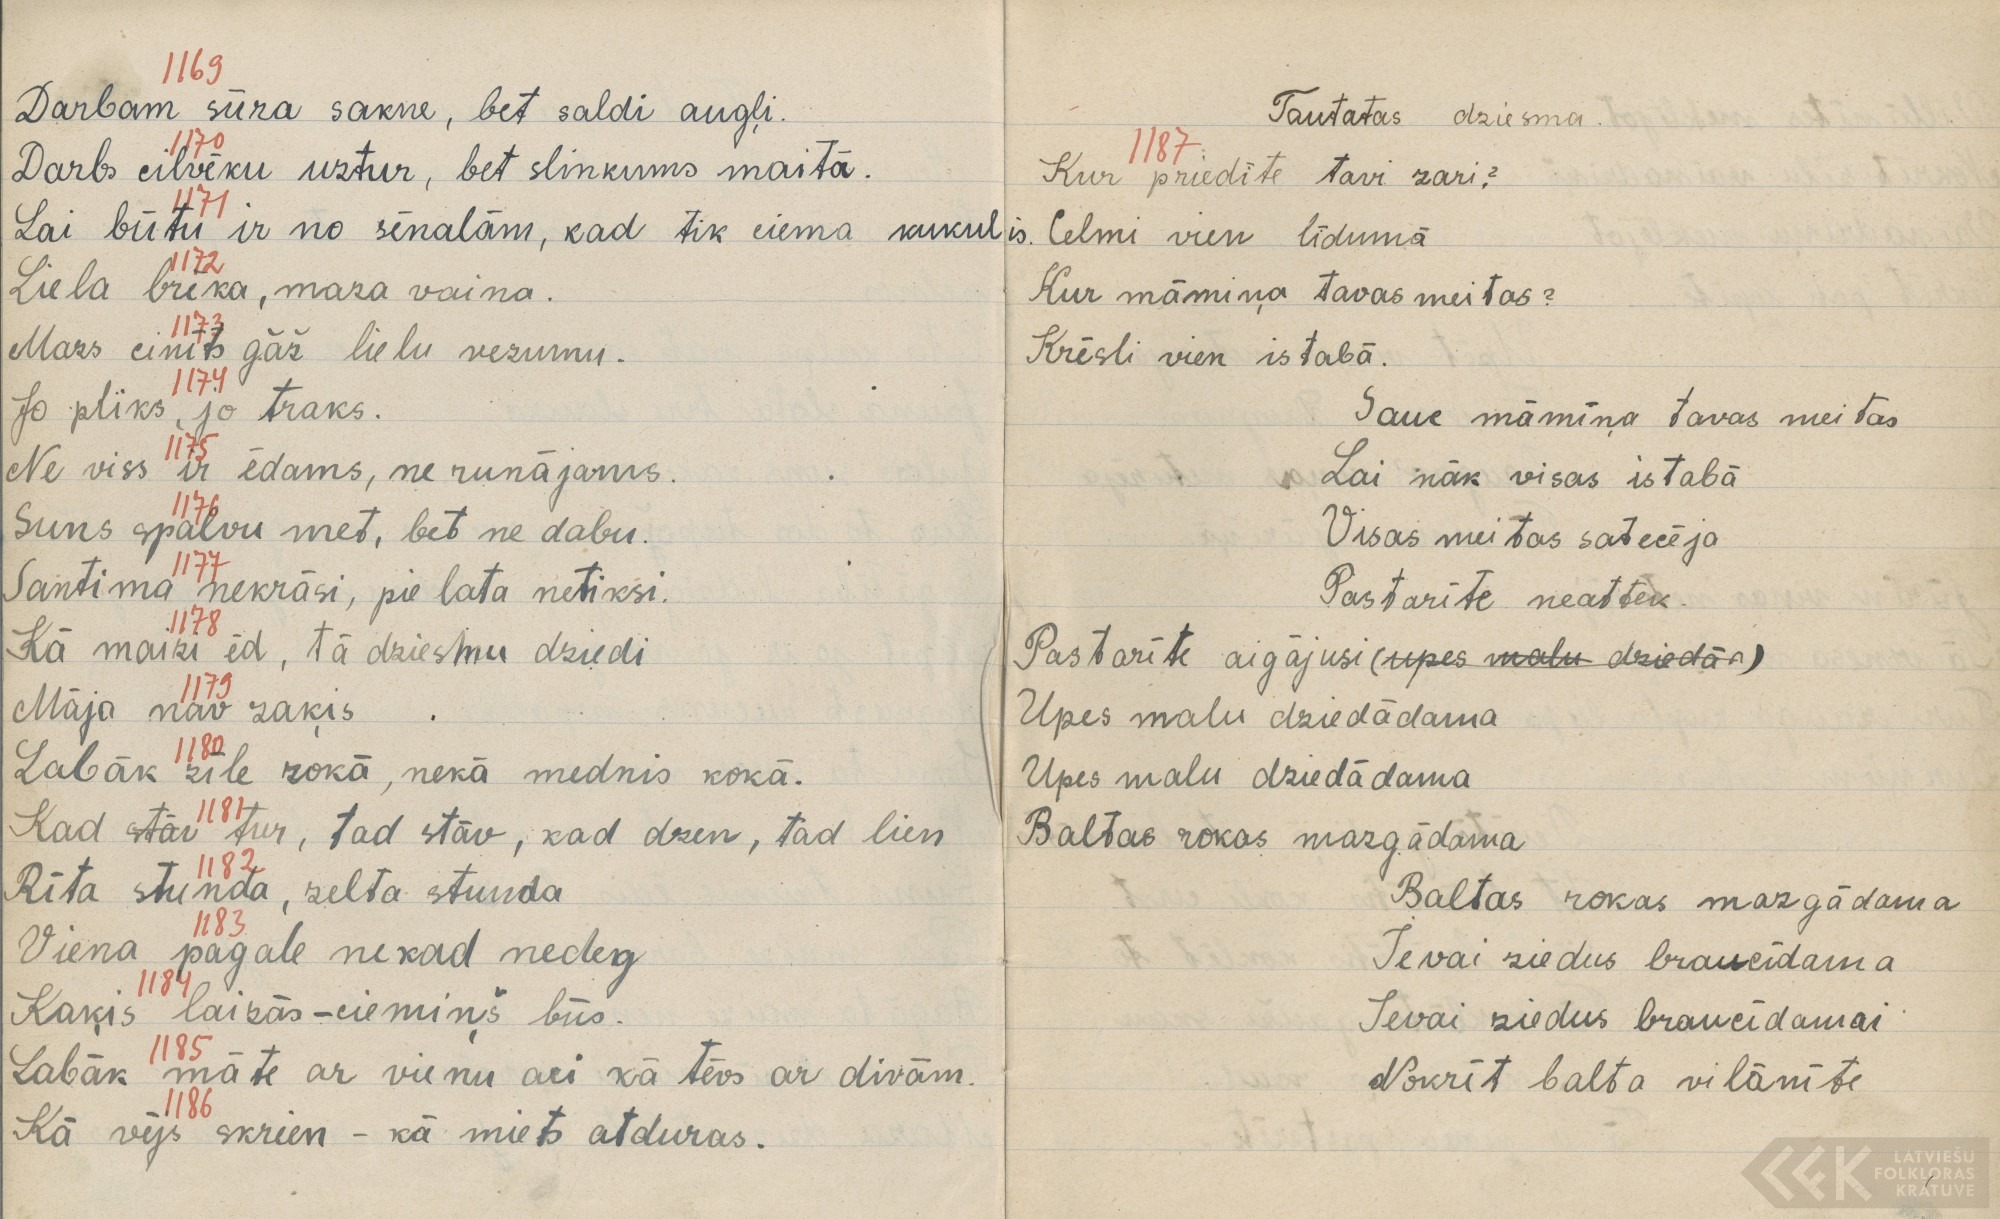 1169
Darbam sūra sakne, bet saldi augļi.
1170
Darbs cilvēku uztur, bet slinkums maitā.
1171
Lai būtu ir no sēnalām, kad tik ciema kukulis.
1172
Liela brēka, maza vaina.
1173
Mazs cinīts gāž lielu vezumu.
1174
Jo pliks, jo traks.
1175
Ne viss ir ēdams, ne runājams.
1176
Suns spalvu met, bet ne dabu.
1177
Santima nekrāsi, pie lata netiksi.
1178
Kā maizi ēd, tā dziesmu dziedi
1179
Māja nav zaķis
1180
Labāk zīle rokā, nekā mednis kokā.
1181
Kad stāv tur, tad stāv, kad dzen, tad lien
1182
Rīta stunda, zelta stunda
1183
Viena pagale nekad nedeg
1184
Kaķis laizās – ciemiņš būs.
1185
Labāk māte ar vienu aci kā tēvs ar divām.
1186
Kā vējs skrien – kā miets atduras.
Tautatas dziesma.
1187
Kur priedīte tavi zari?
Celmi vien līdumā
Kur māmiņa tavas meitas?
Krēsli vien istabā.
Sauc māmiņa tavas meitas
Lai nāk visas istabā
Visas meitas satecēja
Pastarīte neattek.
Pastarīte aigājusi (upes malu dziedāt)
Upes malu dziedādama
Upes malu dziedādama
Baltas rokas mazgādama
Baltas rokas mazgādama
Ievai ziedus braucīdama
Ievai ziedus braucīdamai
Nokrīt balta vilānīte
LATVIEŠU
FOLKLORAS
KRĀTUVE